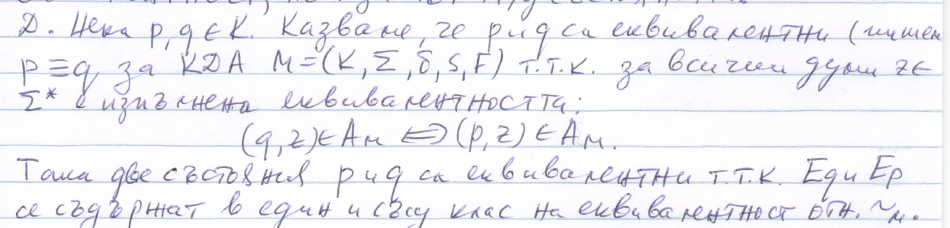 Д. Нека p, q ∈ K. Казваме, че p и q са еквивалентни (пишем
p ≡ q за КДА M = (K, Σ, δ, S, F) т.т.к. за всички думи z ∈
Σ* е изпълнена еквивалентността:
(q, z) ∈ Aм ⇔ (p, z) ∈ Aм.
Така две състояния p и q са еквивалентни т.т.к. Eq и Ep
се съдържат в един и същ клас на еквивалентност отн. ~м.